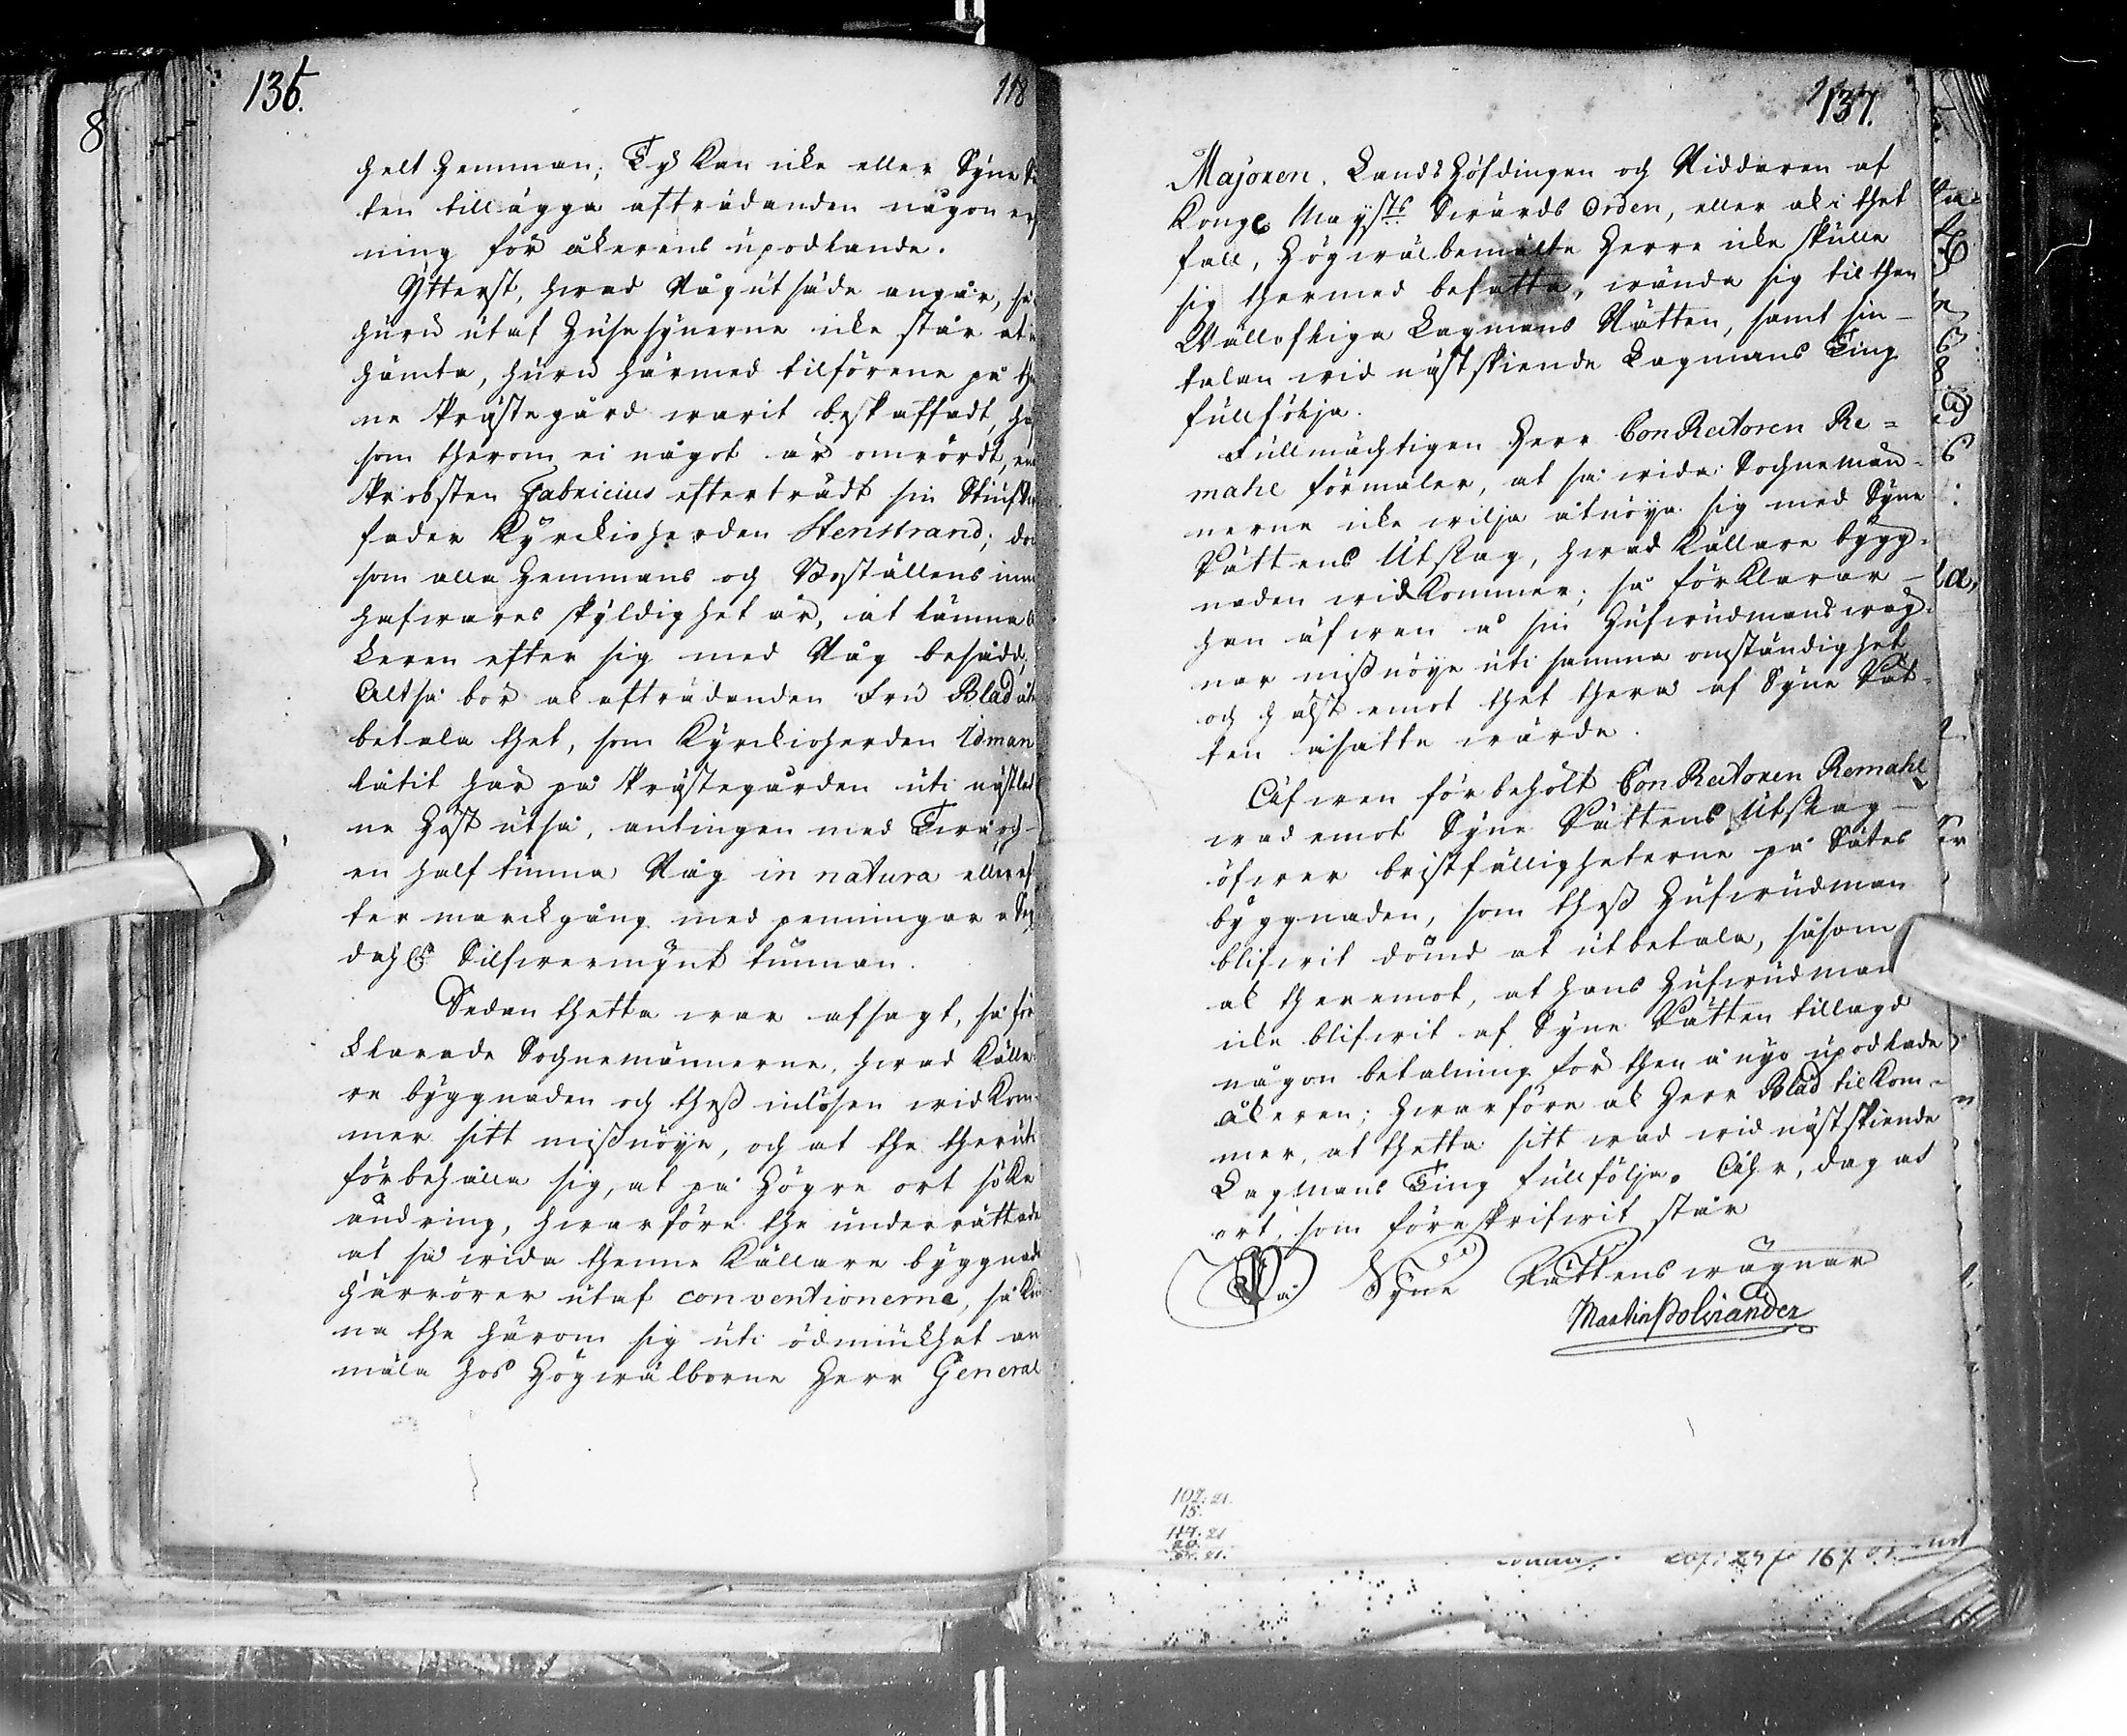 136.
118
helt hemman; Ty kan icke eller Syne Rä
ten tillägga afträdanden någon er
ning för åkerens upodlande.
Ytterst, hwad Rågutsäde angår, så
huru utaf Husesynerne icke står at in
hämta, huru härmed tilförene på then
ne Prästegård warit beskaffadt, hälst
som therom ei något är omrördt, enär
Probsten Fabricius efterträdt sin Stiuf
fader Kyrckioherden Stenstrand; dock
som alla Hemmans och Boställens inne
hafwares skyldighet är, at lämna å
keren efter sig med Råg besådd.
Altså bör ock afträdanden Fru Blad åter
betala thet, som Kyrckioherden Idman
låtit här på Prästegården uti nästled
ne Höst utså, antingen med Twå och
en half tunna Råg in natura eller ef
ter marckgång med penningar a Sex
dahler Silfwermynt tunnan.
Sedan thetta war afsagt, så för
klarade Sochnemännerne, hwad Källa
re byggnaden och thess inlösen widkom-
mer sitt missnöye, och at the theruti
förbehålla sig, at på Högre ort söka
ändring, hwarföre the underrättade
at så wida thenne Källare byggnad
härrörer utaf conventionerne, så kun
na the härom sig uti ödmiukhet an
mäla hos Högwälborne Herr General
137.
Majoren. Landshöfdingen och Riddaren af
Kongl Mayts Swärds Orden, eller ock i thet
fall, Högwälbemälte Herre icke skulle
sig thermed befatta, wända sig til then
Wällofliga Lagmans Rätten, samt sin
talan wid nästskiende Lagmans Ting
fullfölja.
Fullmächtigen Herr ConRectoren Re=
mahl förmäler, at så wida Sochnemän-
nerne icke wilja åtnöya sig med Syne
Rättens Utslag, hwad Källare bygg-
naden widkommer; så förklarar
han äfwen å sin Hufwudmans wäg-
nar missnöye uti samma omständighet
och hälst emot thet thera af Syne Rät-
ten åsatte wärde.
Äfwen förbehölt ConRectoren Remahl
wad emot Syne Rättens Utslag
öfwer bristfälligheterne på Sätes
byggnaden, som thess Hufwudman
blifwit dömd at utbetala, såsom
ock theremot, at hans Hufwudman
icke blifwit af Syne Rätten tillagd
någon betalning för then å nyo upodlade
åkeren; hwarföre ock Herr Blad tilkom-
mer, at thetta sitt wad wid nästskiende
Lagmans Ting fullfölja. Åhr, dag och
ort, som föreskrifwit står
På Syne Rättens wägnar
Martin Polviander
107. 21.
15.